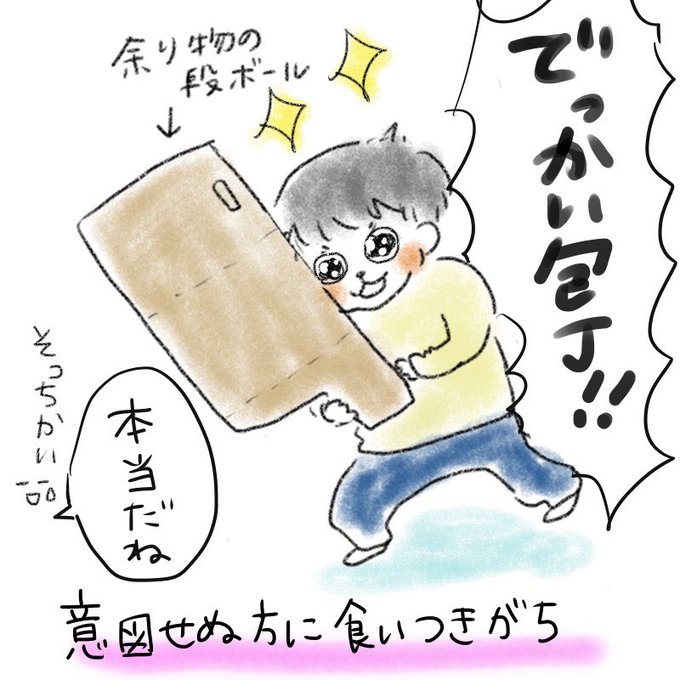 でっかい包丁!!
余り物の
段ボール
本当だね
そっちかい品
意図せぬ方に食いつきがち